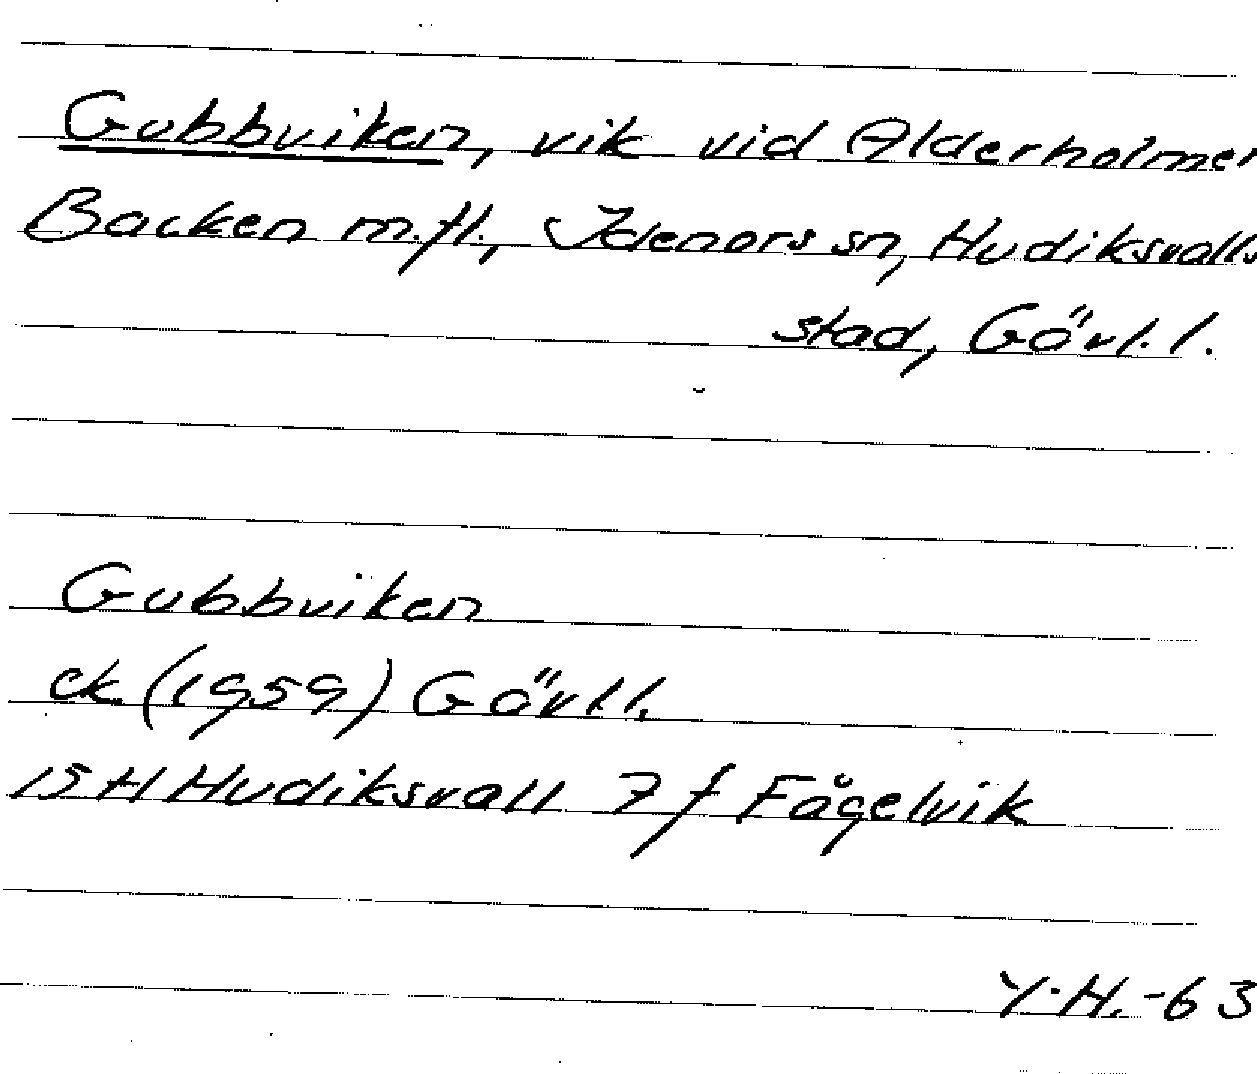 Gubbviken, vik vid Alderholmen
Backen m.fl., Idenors sn, Hudiksvalls
stad, Gävl. l.
Gubbviken
ek. (1959) Gävl. l.
15 H Hudiksvall 7 f Fågelvik
Y.H. -63